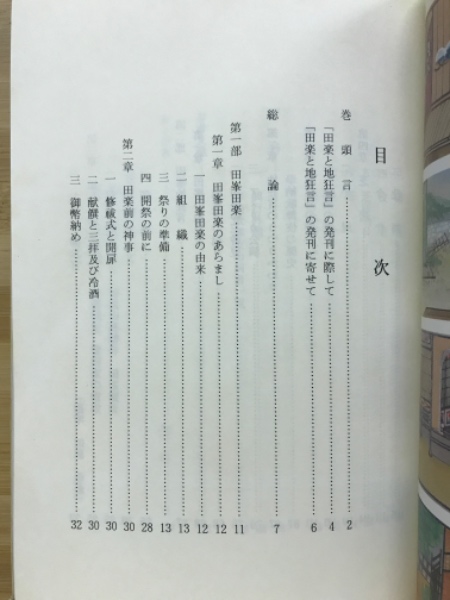 目次
巻頭言 2
『田楽と地狂言』の発刊に際して 4
『田楽と地狂言』の発刊に寄せて 6
総論 7
第一部 田峯田楽 11
第一章 田峯田楽のあらまし 12
一 田峯田楽の由来 12
二 組織 13
三 祭りの準備 13
四 開祭の前に 28
第二章 田楽前の神事 30
一 修祓式と開扉 30
二 献饌と三拝及び冷酒 30
三 御幣納め 32